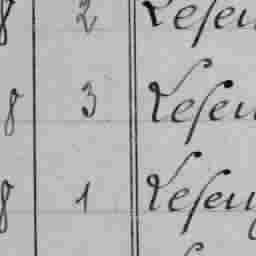 8 2 Leseu
8 3 Leseu
8 1 Leseu